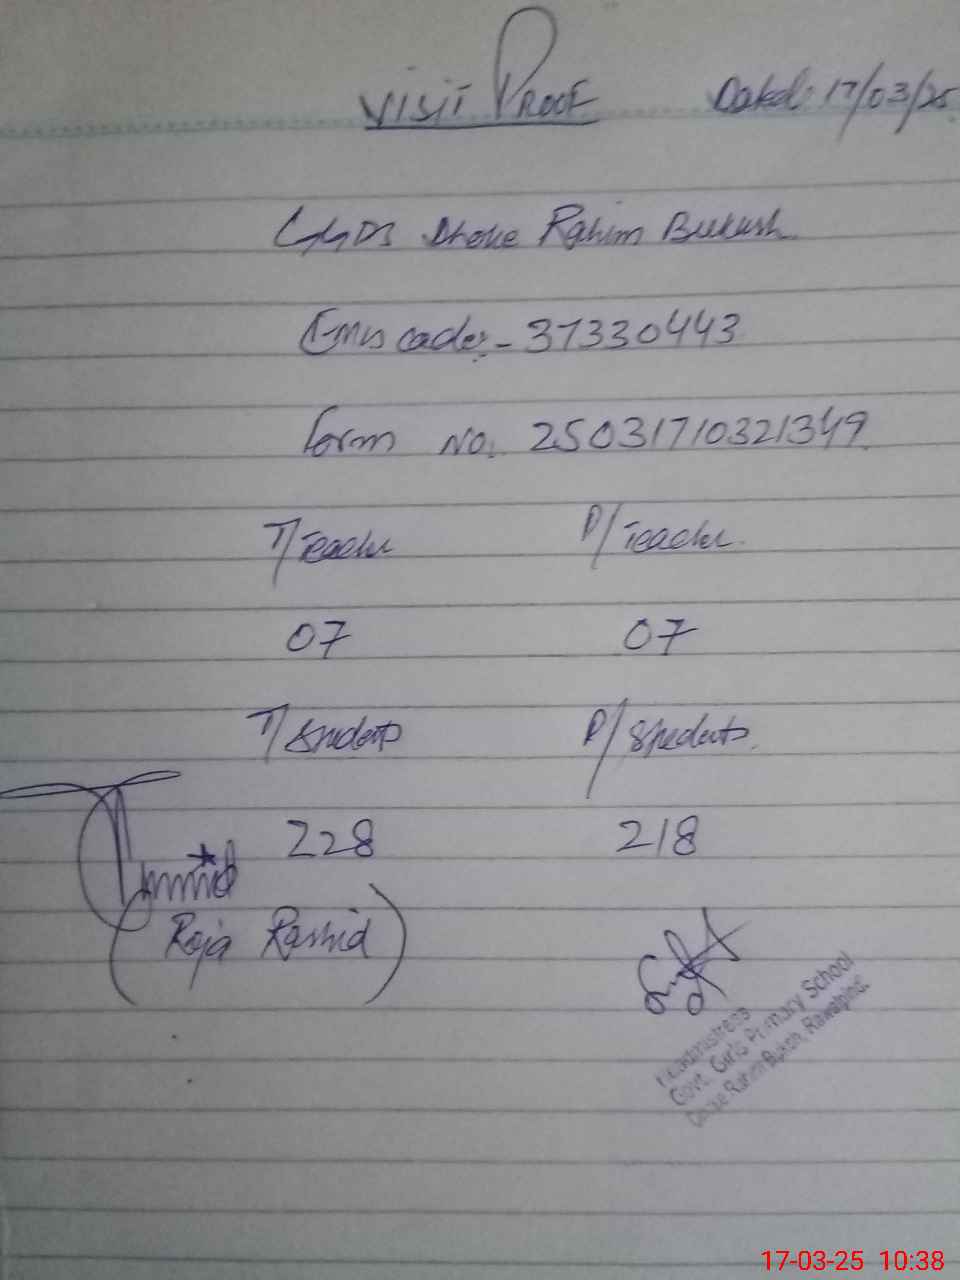 VISIT PROOF Dated: 17/03/25
GGPS Dhoke Rahim Buksh
Emis code:- 37330443
Form No. 25031710321349
T/Teacher P/Teacher.
07 07
T/Students P/Students.
228 218
(Raja Rashid)
Headmistress
Govt. Girls Primary School
Dhoke Rahim Buksh, Rawalpindi.
17-03-25 10:38